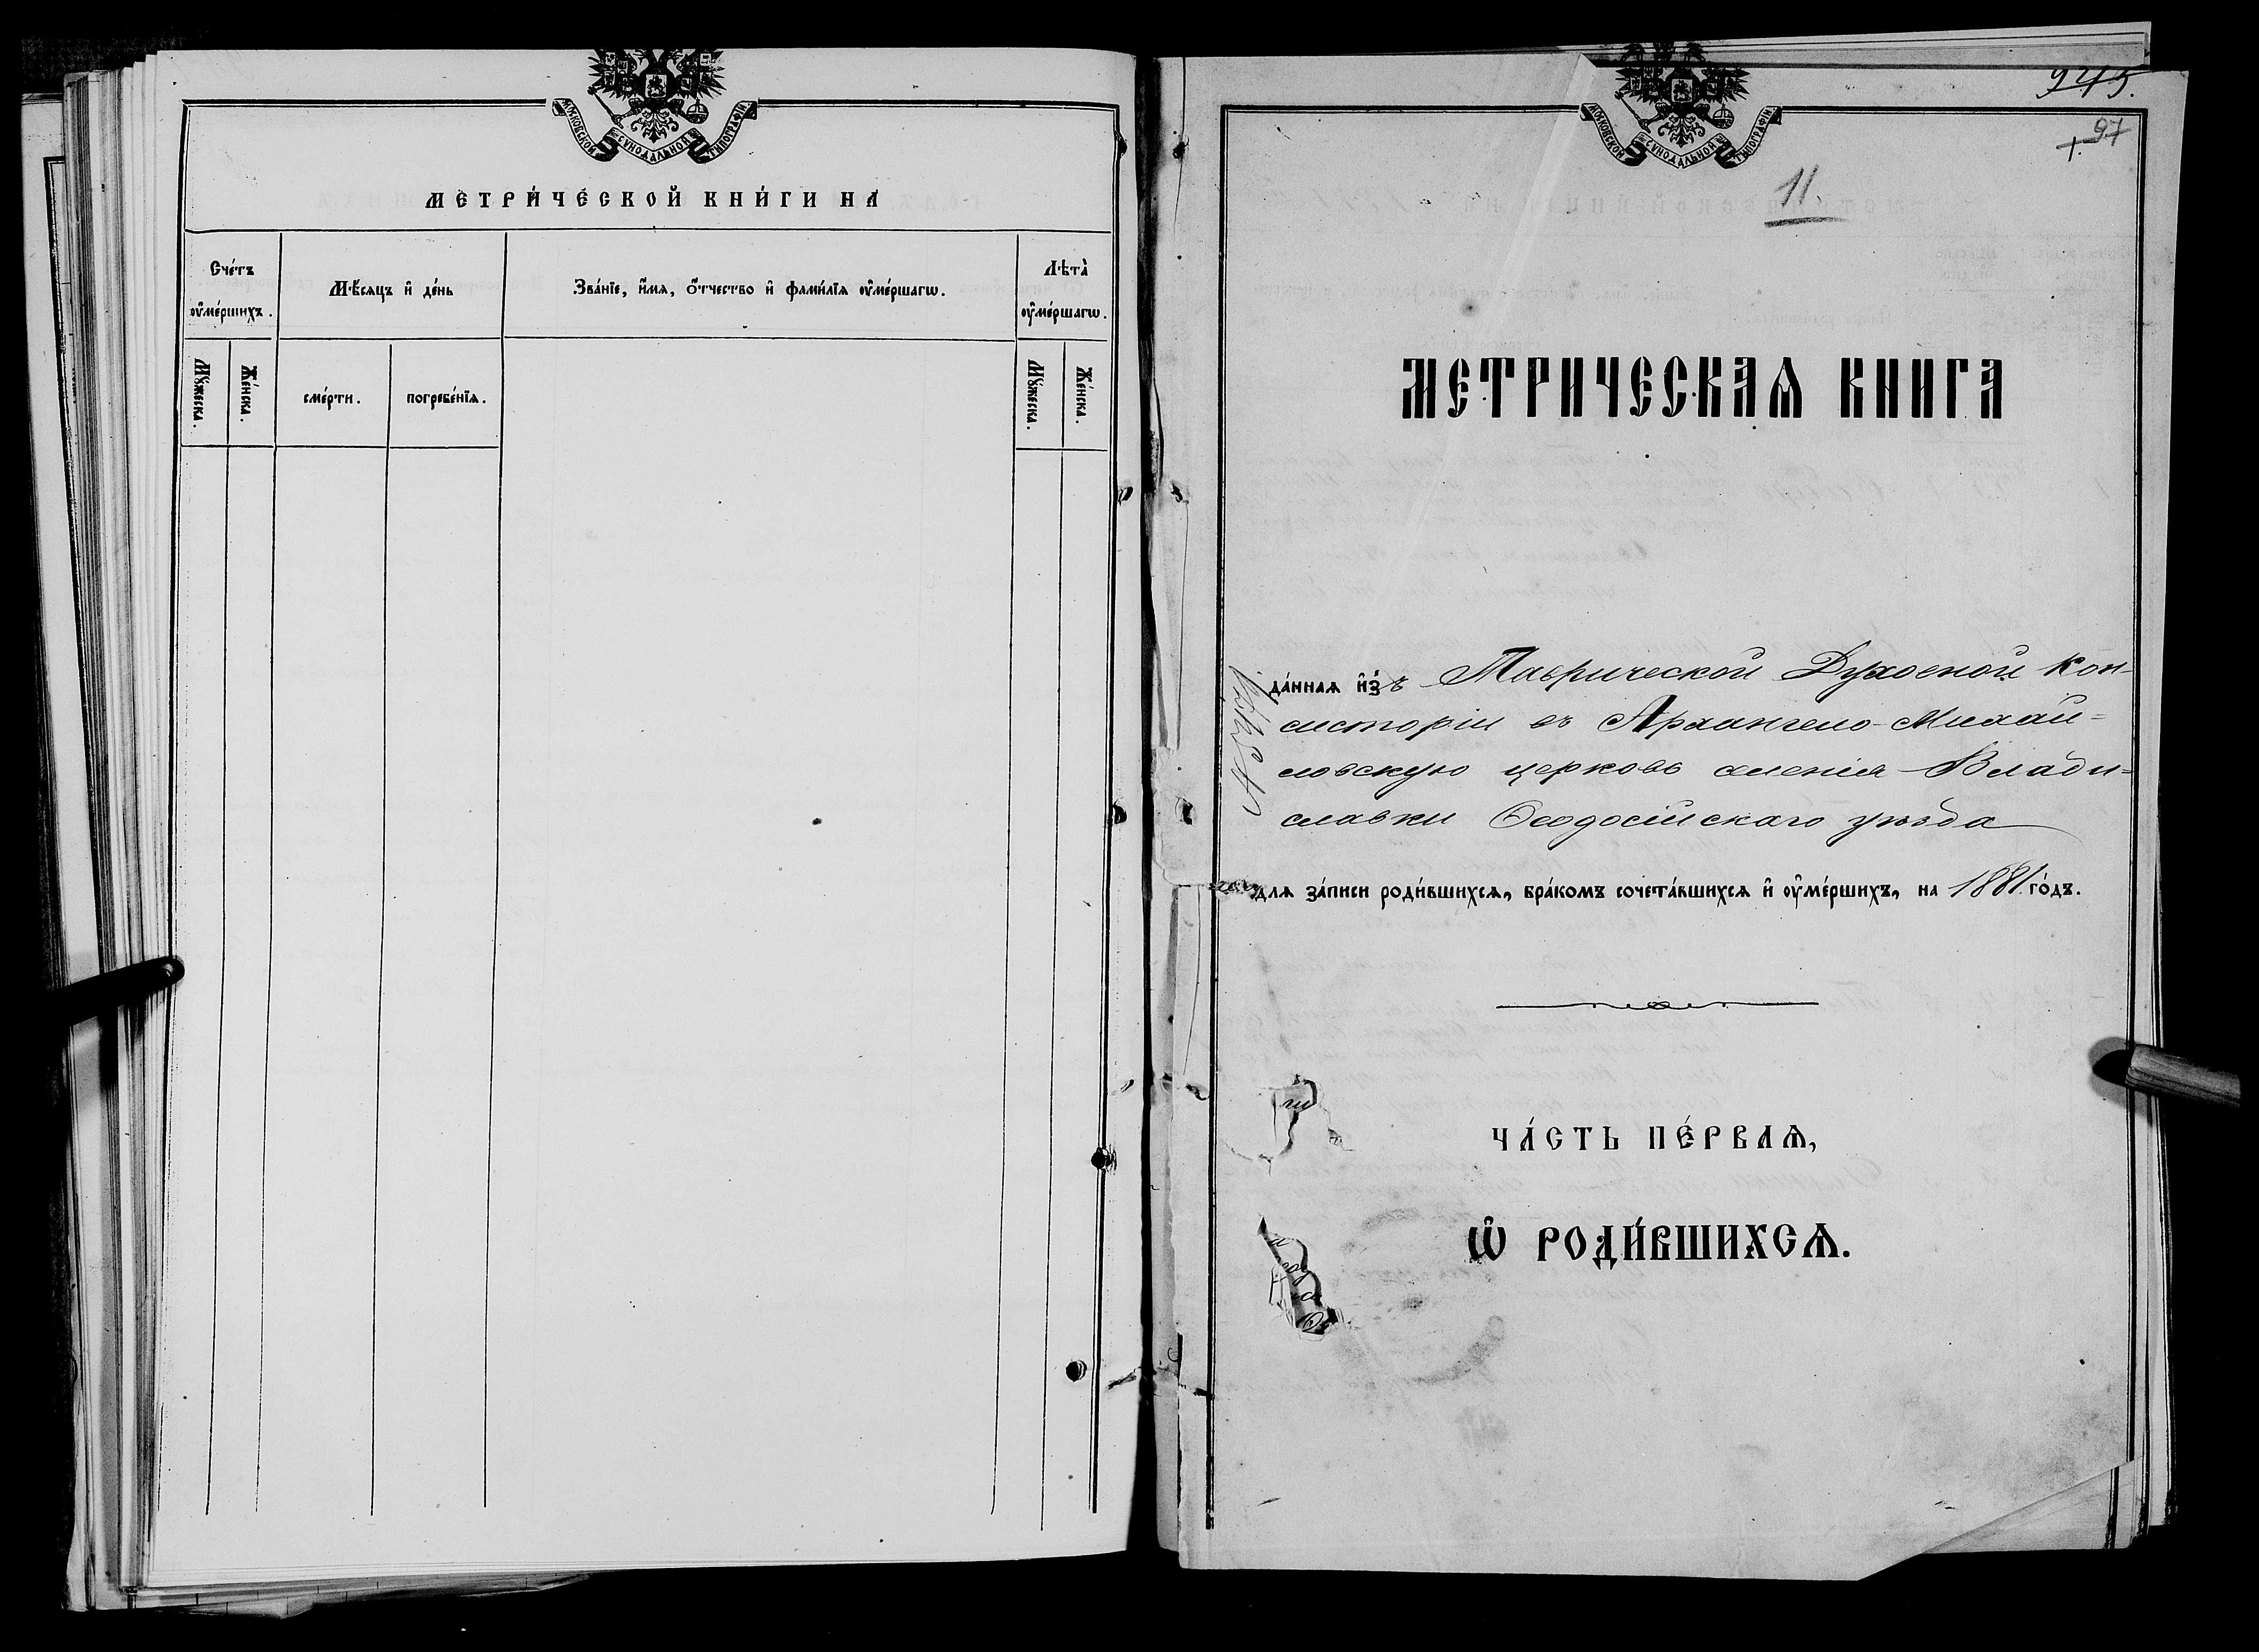 МОСКОВСКОЙ СѴНОДАЛЬНОЙ ТѴПОГРАФІИ
МЕТРИ́ЧЕСКОЙ КНИ́ГИ НА
Сче́тъ
ᲂу҆ме́ршихъ.
Мѣ́сяцъ и҆ де́нь
Зва́нїе, и҆́мѧ, ѻ҆́тчество и҆ фами́лїѧ ᲂу҆ме́ршагѡ.
Лѣ́та
ᲂу҆ме́ршагѡ.
Мꙋ́жеска.
Же́нска.
сме́рти.
погребе́нїѧ.
Мꙋ́жеска.
Же́нска.
МОСКОВСКОЙ СѴНОДАЛЬНОЙ ТѴПОГРАФІИ
945.
97
11.
МЕТРИЧЕСКАѦ КНИГА
да́ннаѧ и҆з̾ъ Таврической Духовной Кон-
систоріи въ Архангело-Михаи-
ловскую церковь селенія Влади-
славки Ѳеодосійскаго уѣзда
для за́писи роди́вшихсѧ, бра́комъ сочета́вшихсѧ и҆ ᲂу҆ме́ршихъ, на 1881 го́дъ.
ЧА́СТЬ ПЕ́РВАѦ,
Ѡ҆ РОДИ́ВШИХСѦ.